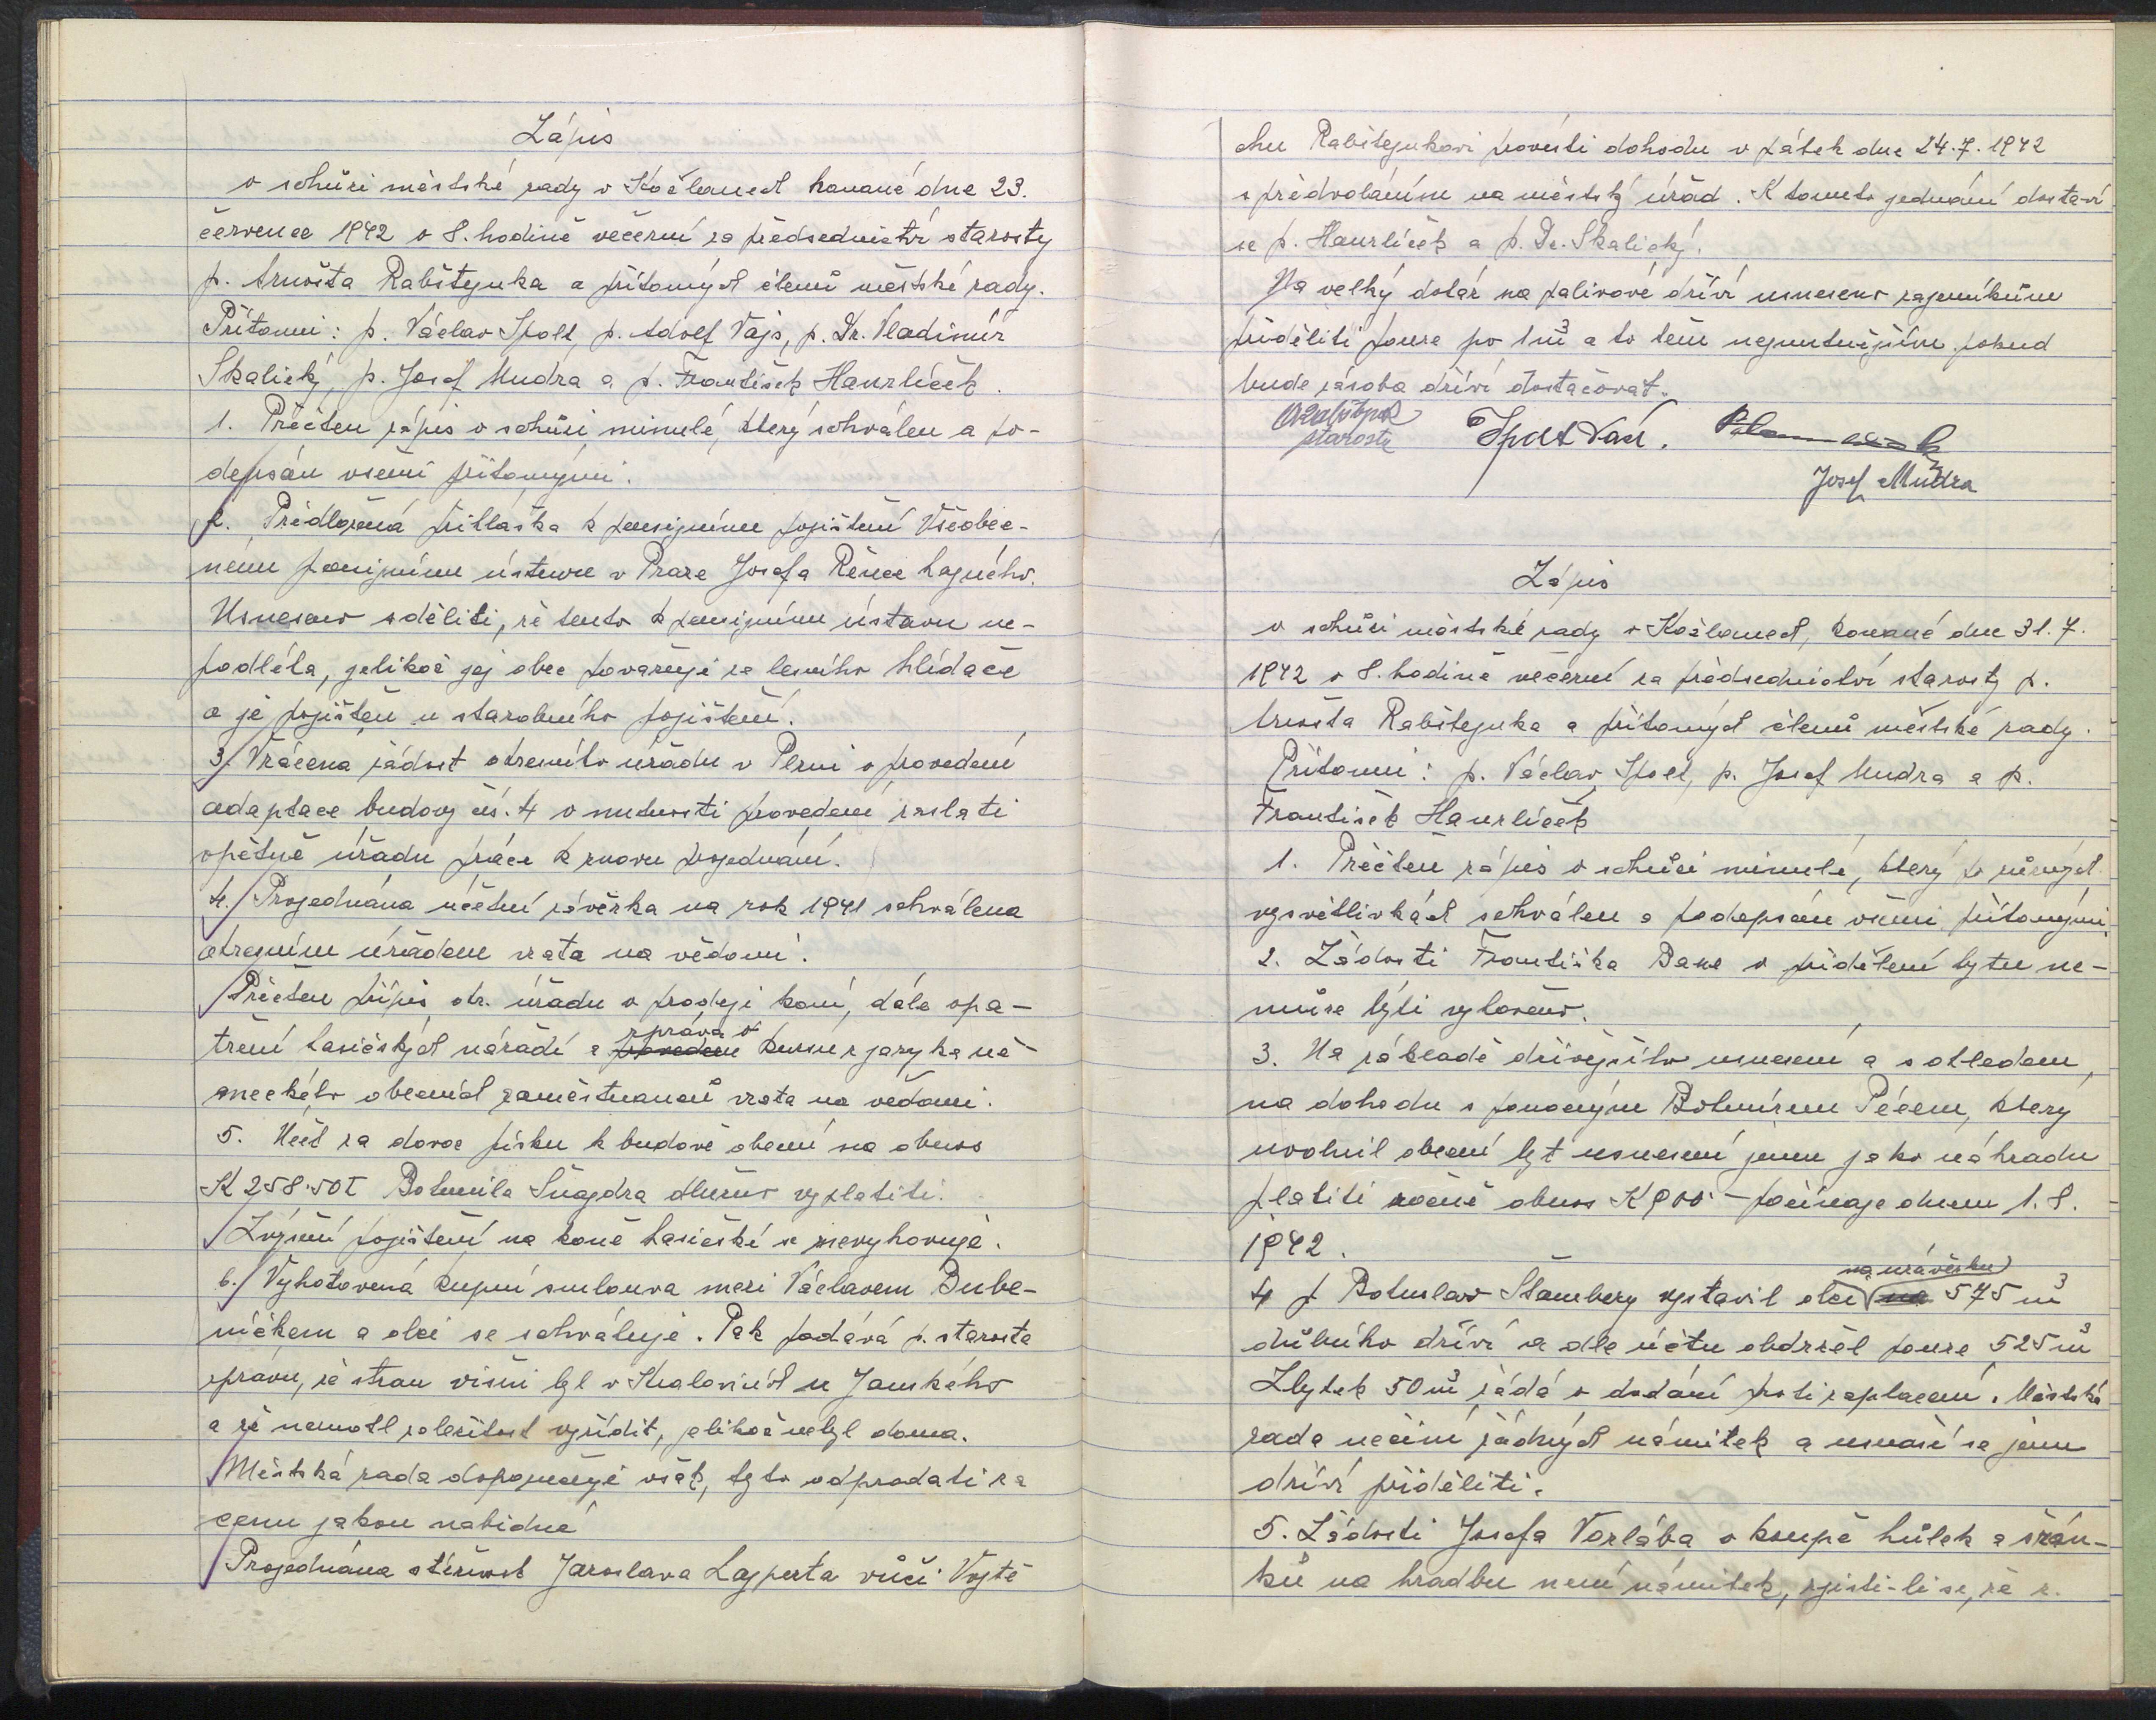 Zápis
o schůzi městské rady v Kožlanech konané dne 23.
července 1942 o 8. hodině večerní za předsednictví starosty
p. Arnošta Rabštejnka a přítomných členů městské rady.
Přítomni: p. Václav Špelt, p. Adolf Vajs, p. Dr. Vladimír
Skalický, p. Josef Mudra a p. František Havrlíček.
1. Přečten zápis o schůzi minulé, který schválen a po-
depsán všemi přítomnými.
2. Předložená přihláška k pensijnímu pojištění Všeobec-
nému pensijnímu ústavu v Praze Josefa Rence hajného.
Usneseno sděliti, že tento k pensijnímu ústavu ne-
podléhá, jelikož jej obec považuje za lesního hlídače
a je pojištěn u starobního pojištění.
3. Vrácena žádost okresního úřadu v Plzni o provedení
adaptace budovy čís. 4 o nutnosti provedení zaslati
opětně úřadu práce k znovu projednání.
4. Projednána účetní závěrka na rok 1941 schválena
okresním úřadem vzata na vědomí.
Přečten přípis okr. úřadu o prodeji koní, dále opa-
tření hasičských nářadí a zpráva o kursu z jazyka ně-
meckého obecních zaměstnanců vzata na vědomí.
5. Účet za dovoz písku k budově obecní na obnos
K 258.50 Bohumila Šnajdra dlužno vyplatiti.
Zvýšení pojištění na koně hasičské se nevyhovuje.
6. Vyhotovená kupní smlouva mezi Václavem Bube-
níčkem a obcí se schvaluje. Pak podává p. starosta
zprávu, že stran višní byl v Kralovicích u Janského
a že nemohl záležitost vyřídit, jelikož nebyl doma.
Městská rada doporučuje však, tyto odprodati za
cenu jakou nabídne
Projednána stížnost Jaroslava Lajperta vůči Vojtě
chu Rabštejnkovi provésti dohodu v pátek dne 24.7.1942
s předvoláním na městský úřad. K tomuto jednání dostaví
se p. Havrlíček a p. Dr. Skalický.
Na velký dotaz na palivové dříví usneseno zájemníkům
přiděliti pouze po 1 m³ a to těm nejnutnějším pokud
bude zásoba dříví dostačovat.
starosta
Josef Mudra
Zápis
o schůzi městské rady v Kožlanech, konané dne 31.7.
1942 o 8. hodině večerní za předsednictví starosty p.
Arnošta Rabštejnka a přítomných členů městské rady.
Přítomni: p. Václav Špelt, p. Josef Mudra a p.
František Havrlíček
1. Přečten zápis o schůzi minulé, který po různých
vysvětlivkách schválen a podepsán všemi přítomnými.
2. Žádosti Františka o přidělení bytu ne-
může býti vyhověno.
3. Na základě dřívějšího usnesení a s ohledem
na dohodu s Bohumírem Pécem, který
uvolnil obecní byt usneseni jemu jako náhradu
platiti ročně obnos K 900 - počínaje dnem 1.8.
1942.
4 p Bohuslav Štamberg vystavil obci na uzávěrku 575 m³
důlního dříví a dle účtu obdržel pouze 525 m³
Zbytek 50 m³ žádá o dodání proti zaplacení. Městská
rada nečiní žádných námitek a usnáší se jemu
dříví přiděliti.
5. Žádosti Josefa Vorlába o koupě hůlek a
ků na hradbu není námitek, zjistí-li se, že z.